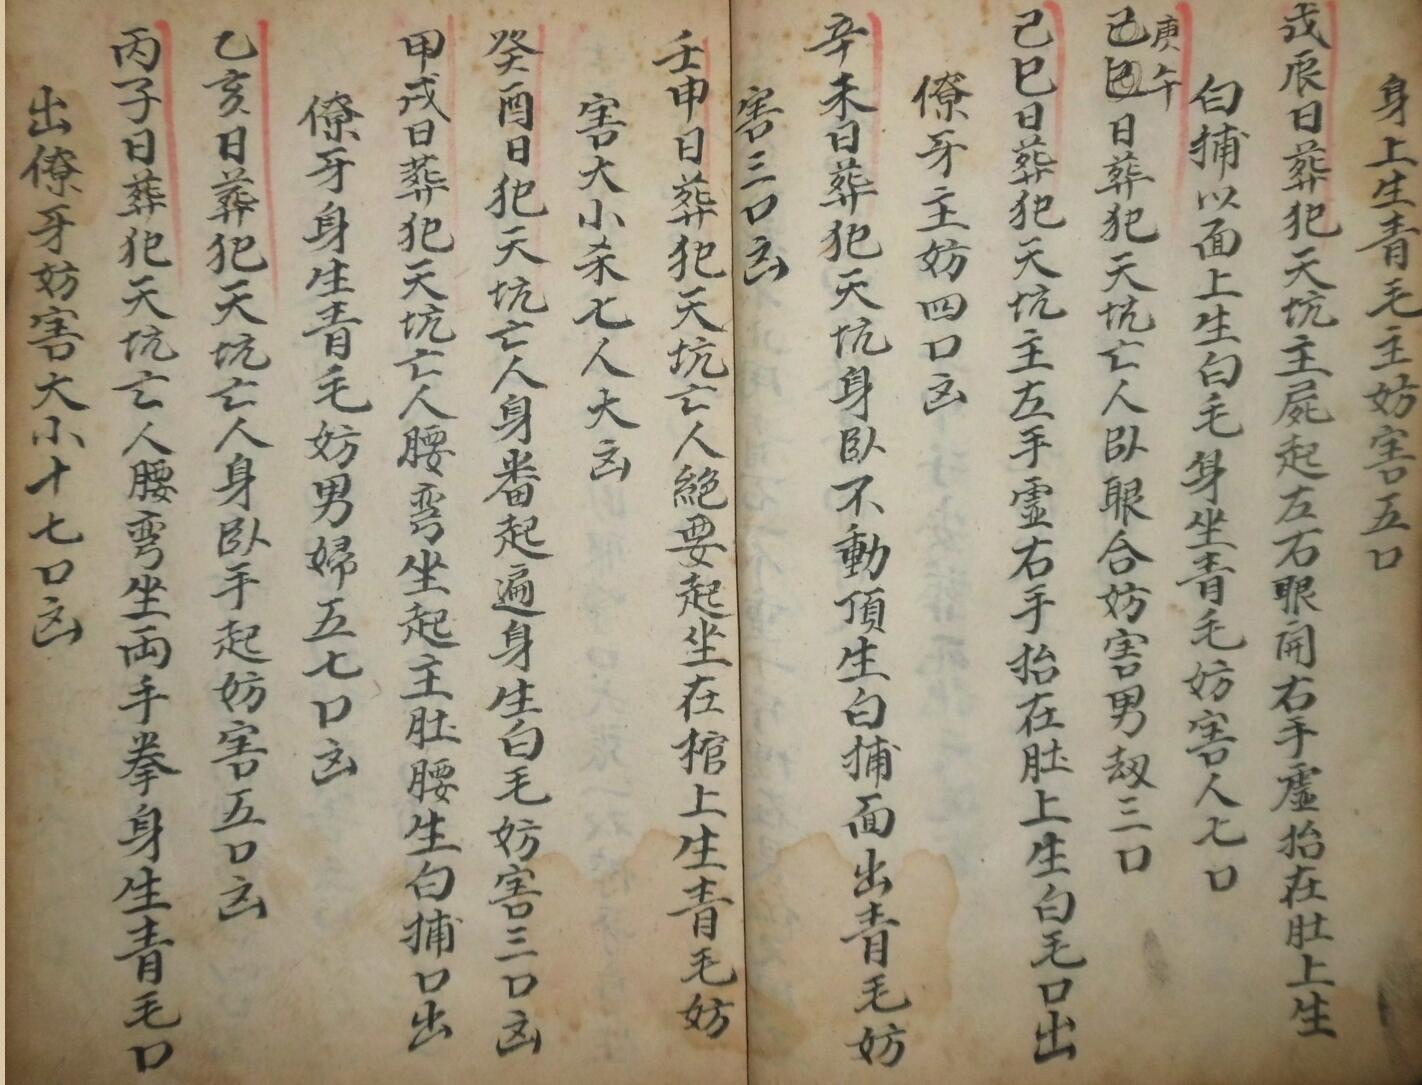 身上生青毛主妨害五口
戊辰日葬犯天坑主屍起左右眼開右手虛抬在肚上生
白捕以面上生白毛身坐青毛妨害人七口
己巳庚午日葬犯天坑亡人卧眼合妨害男刼三口
己巳日葬犯天坑主左手虛右手抬在肚上生白毛口出
僚牙主妨四口凶
辛未日葬犯天坑身卧不動頂生白捕面出青毛妨
害三口凶
壬申日葬犯天坑亡人絕要起坐在棺上生青毛妨
害大小杀七人大凶
癸酉日犯天坑亡人身番起遍身生白毛妨害三口凶
甲戌日葬犯天坑亡人腰弯坐起主肚腰生白捕口出
僚牙身生青毛妨男婦五七口凶
乙亥日葬犯天坑亡人身卧手起妨害五口凶
丙子日葬犯天坑亡人腰弯坐両手拳身生青毛口
出僚牙妨害大小十七口凶